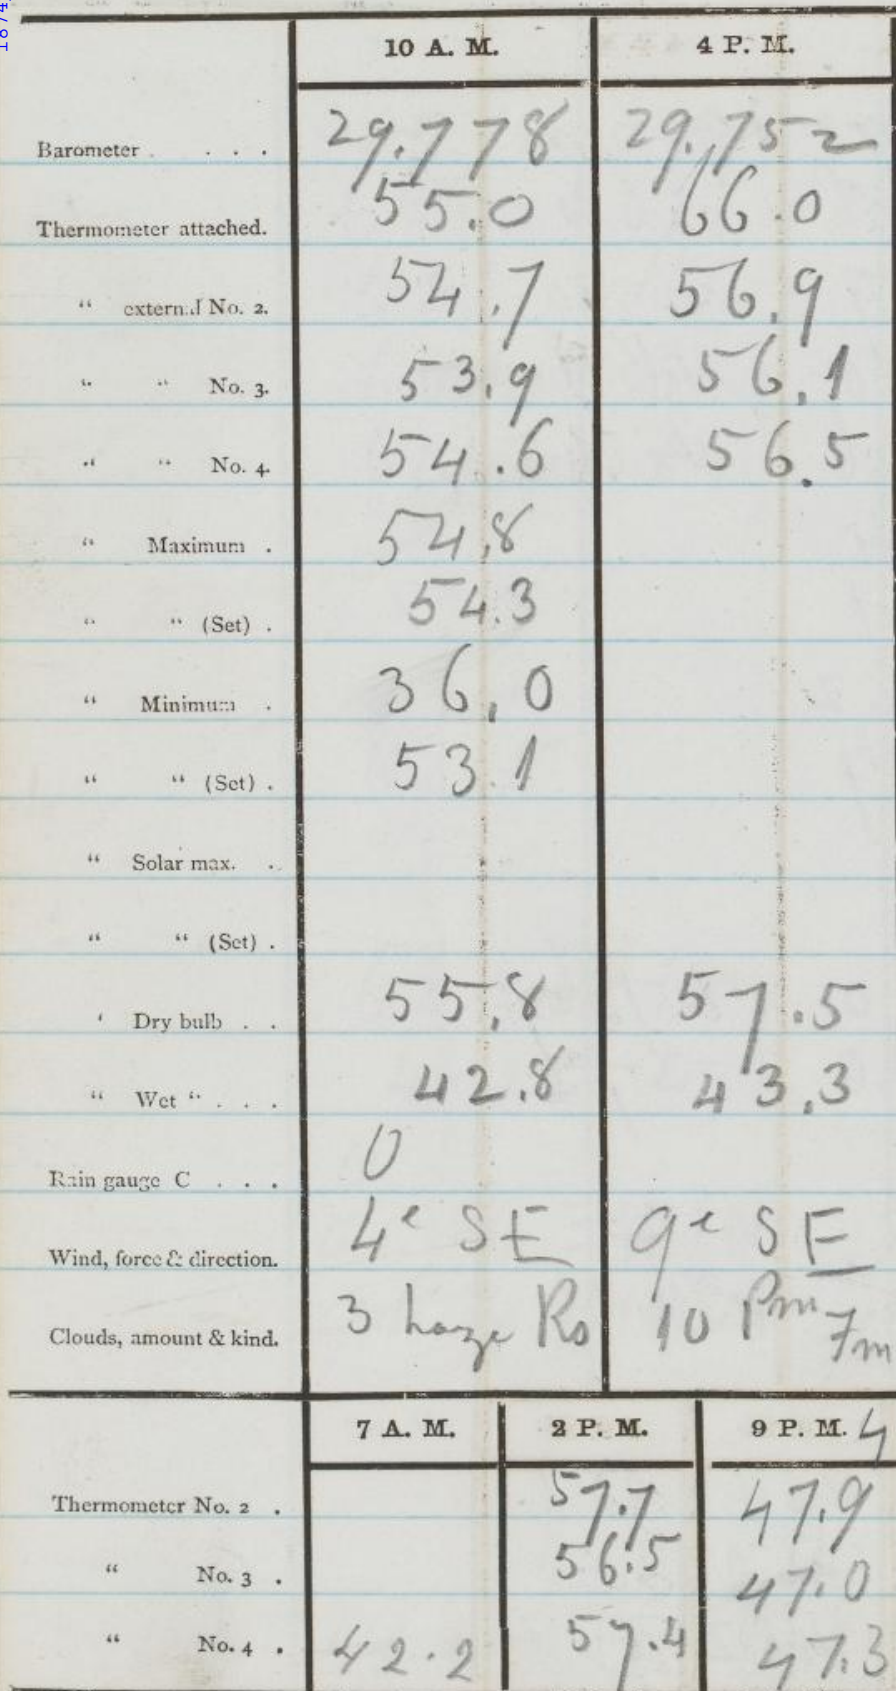 1874
10 A. M. 4 P. M.
Barometer . . . . 29.778 29.752
Thermometer attached. 55.0 66.0
“ external No. 2. 54.7 56.9
“ “ No. 3. 53.9 56.1
“ “ No. 4. 54.6 56.5
“ Maximum . 54.8
“ “ (Set) . 54.3
“ Minimum . 36.0
“ “ (Set) . 53.1
“ Solar max. .
“ “ (Set) .
‘ Dry bulb . . 55.8 57.5
“ Wet “ . . . 42.8 43.3
Rain gauge C . . . 0
Wind, force & direction. 4e SE 9e SE
Clouds, amount & kind. 3 haze Ro 10 Pm Fm
7 A. M. 2 P. M. 9 P. M. 4
Thermometer No. 2 . 57.7 47.9
“ No. 3 . 56.5 47.0
“ No. 4 . 42.2 57.4 47.3